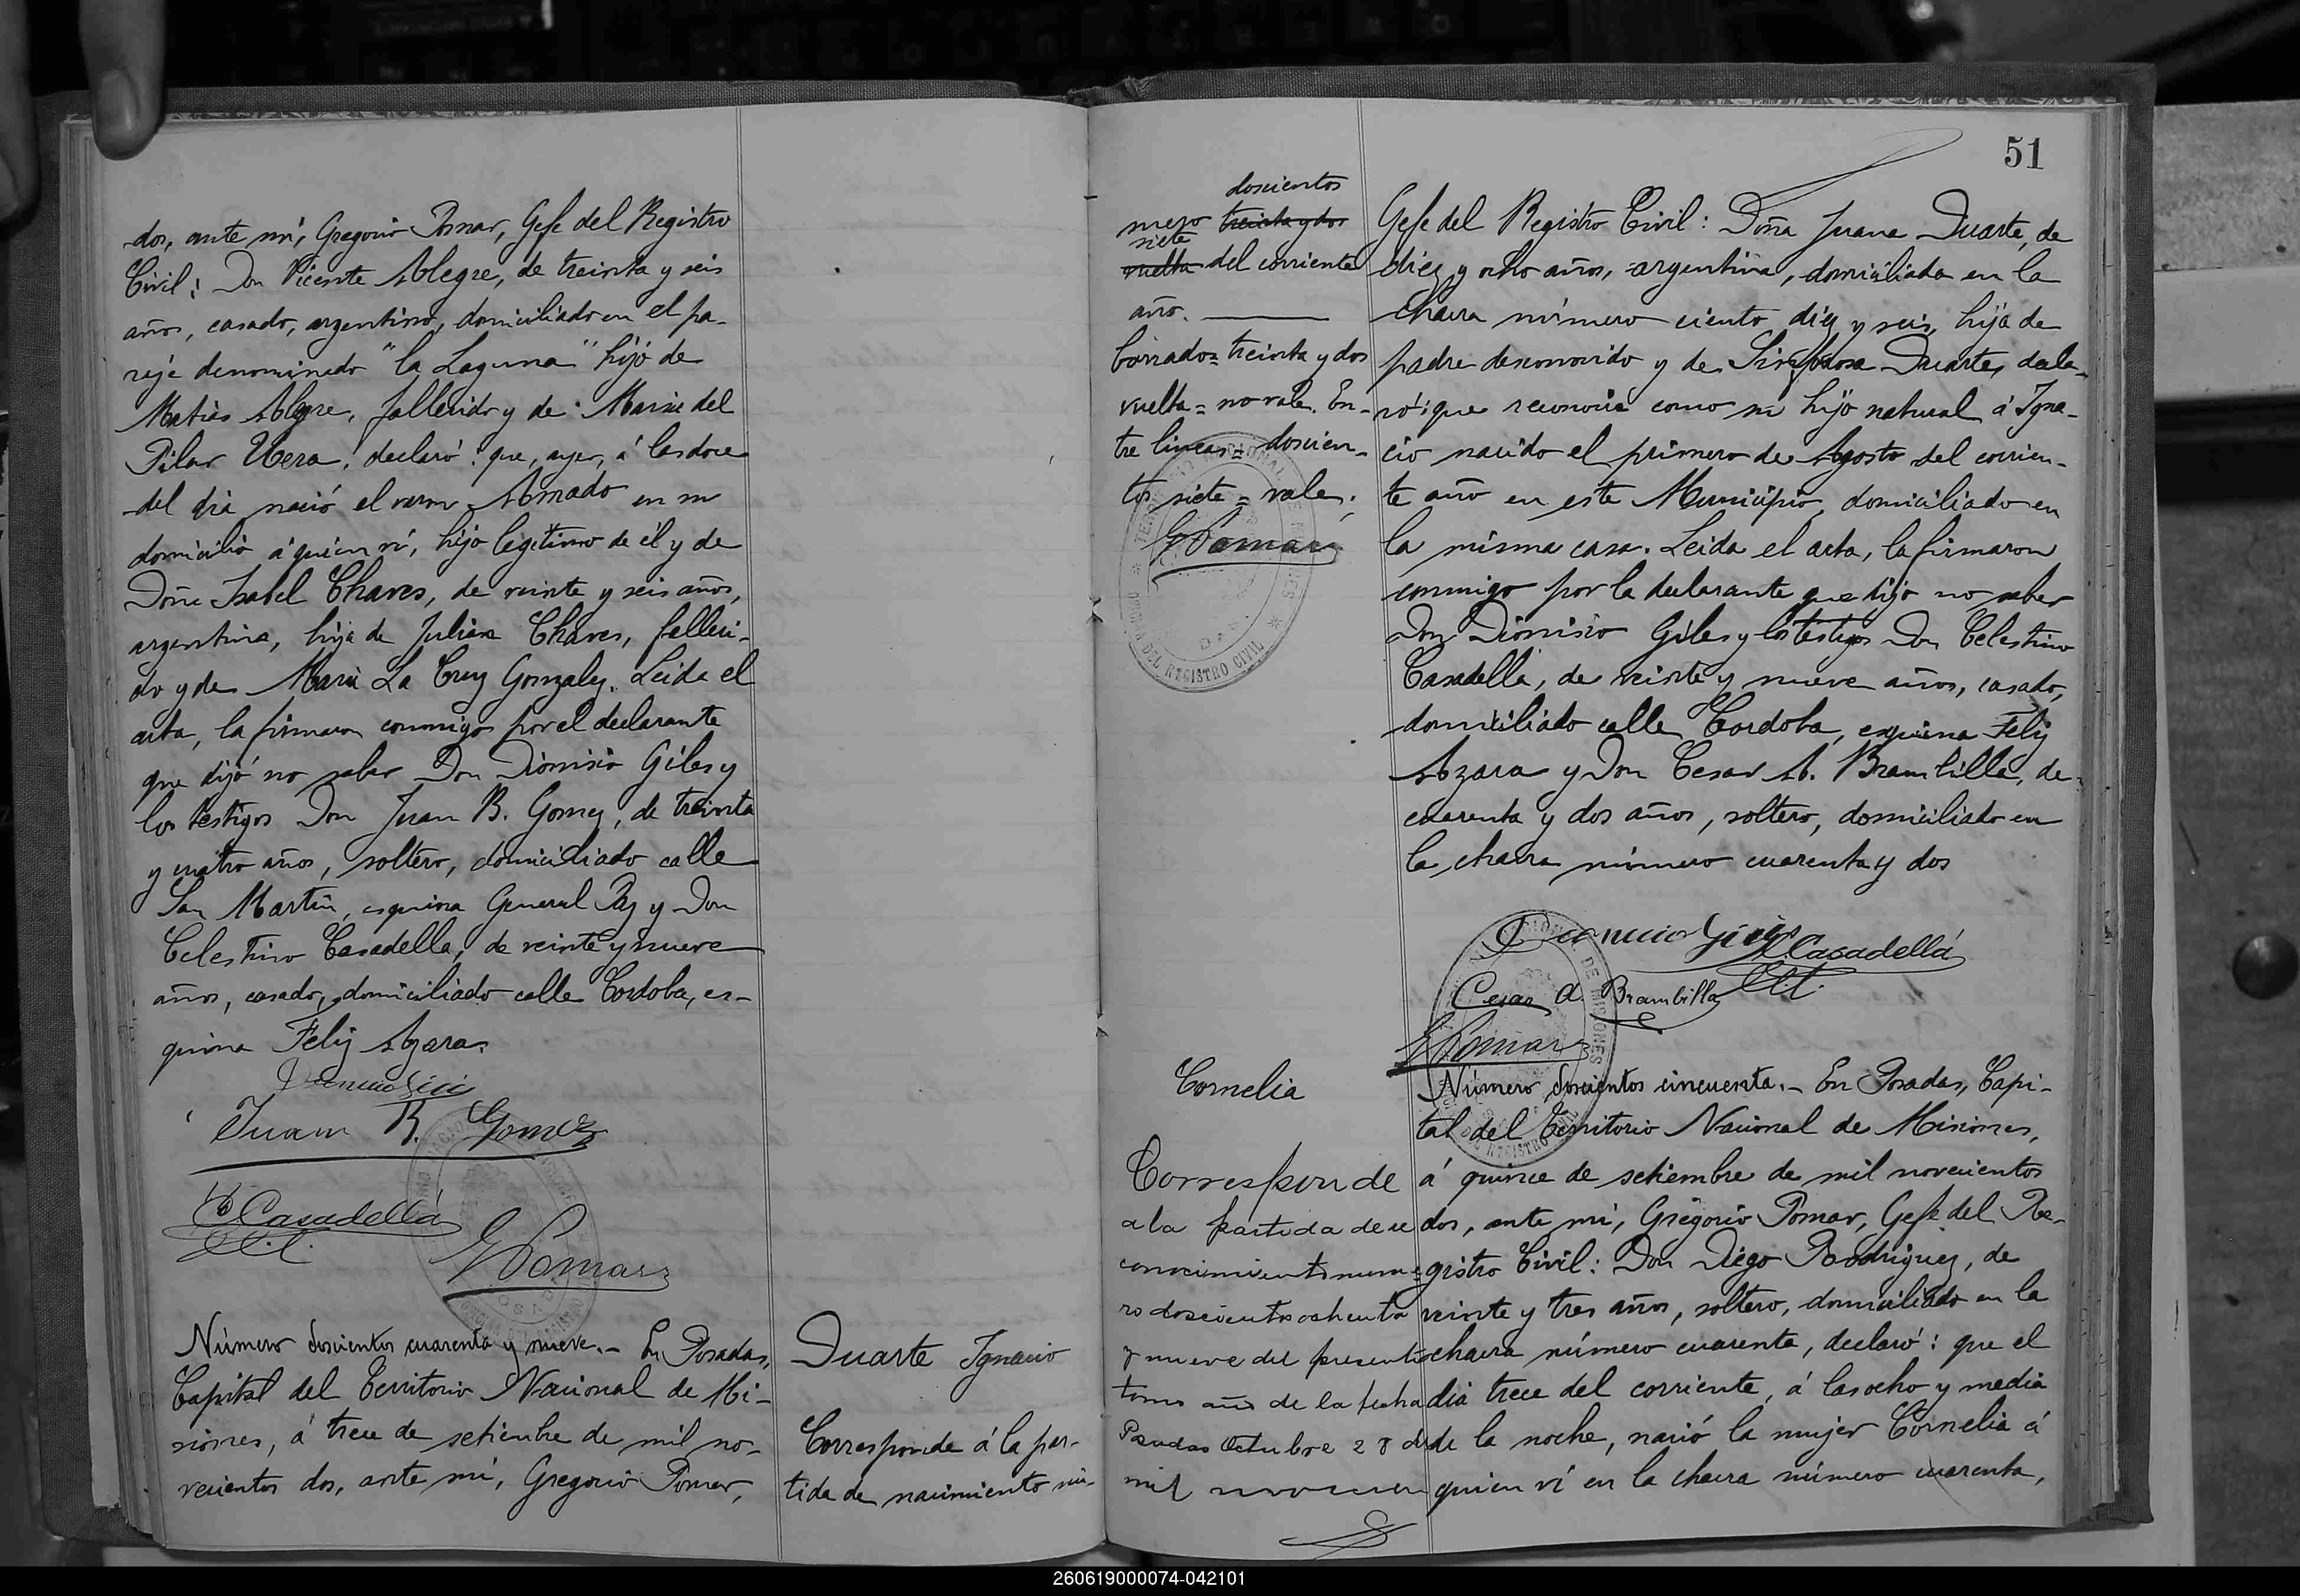 dos, ante mí, Gregorio Pomar, Gefe del Registro
Civil: Don Vicente Alegre, de treinta y seis
años, casado, argentino, domiciliado en el pa-
raje denominado "la Laguna" hijo de
Matias Alegre, fallecido y de Maria del
Pilar Vera, declaró: que, ayer, á las doce
del dia nació el varon Amado en su
domicilio á quien ví, hijo legítimo de él y de
Doña Isabel Chaves, de veinte y seis años,
argentina, hija de Julian Chaves, falleci-
do y de Maria La Cruz Gonzalez. Leida el
acta, la firmaron conmigo por el declarante
que dijó no saber Don Dionisio Giles y
los testigos Don Juan B. Gomez, de treinta
y cuatro años, soltero, domiciliado calle
San Martin, esquina General Paz y Don
Celestino Casadella, de veinte y nueve
años, casado, domiciliado calle Cordoba, es-
quina Feliz Azara.
Juan B. Gomez
C Casadellá
G Pomar
Número doscientos cuarenta y nueve.- En Posadas,
Capital del Territorio Nacional de Mi-
siones, á trece de setiembre de mil no-
vecientos dos, ante mí, Gregorio Pomar,
Duarte Ignacio
Corresponde á la par-
tida de nacimiento nú-
51
doscientos
mero treinta y dos
siete
vuelta del corriente
año.
borrado= treinta y dos
vuelta= no vale. En-
tre lineas= doscien-
tos siete= vale.
G Pomar
TERRITORIO NACIONAL DE MISIONES
OFICINA DEL REGISTRO CIVIL
Gefe del Registro Civil: Doña Juana Duarte, de
diez y ocho años, argentina, domiciliada en la
chacra número ciento diez y seis, hija de
padre desconocido y de Sinforosa Duarte, decla-
ró: que reconocía como su hijo natural á Igna-
cio nacido el primero de Agosto del corrien-
te año en este Municipio, domiciliado en
la misma casa. Leida el acta, la firmaron
conmigo por la declarante que dijo no saber
Don Dionisio Giles y los testigos Don Celestino
Casadella, de veinte y nueve años, casado,
domiciliado calle Cordoba, esquina Feliz
Azara y Don Cesar A. Brambilla, de
cuarenta y dos años, soltero, domiciliado en
la chacra número cuarenta y dos
Dionicio Giles
C Casadellá
Cesar A. Brambilla
G Pomar
Cornelia
Corresponde
a la partida de re
conocimiento nume-
ro doscientos ochenta
y nueve del presente
tomo año de la fecha
Posadas Octubre 28 de
mil
Número doscientos cincuenta.- En Posadas, Capi-
tal del Territorio Nacional de Misiones,
á quince de setiembre de mil novecientos
dos, ante mí, Gregorio Pomar, Gefe del Re-
gistro Civil: Don Diego Rodriguez, de
veinte y tres años, soltero, domiciliado en la
chacra número cuarenta, declaró: que el
dia trece del corriente, á las ocho y media
de la noche, nació la mujer Cornelia á
quien ví en la chacra número cuarenta,
260619000074-042101